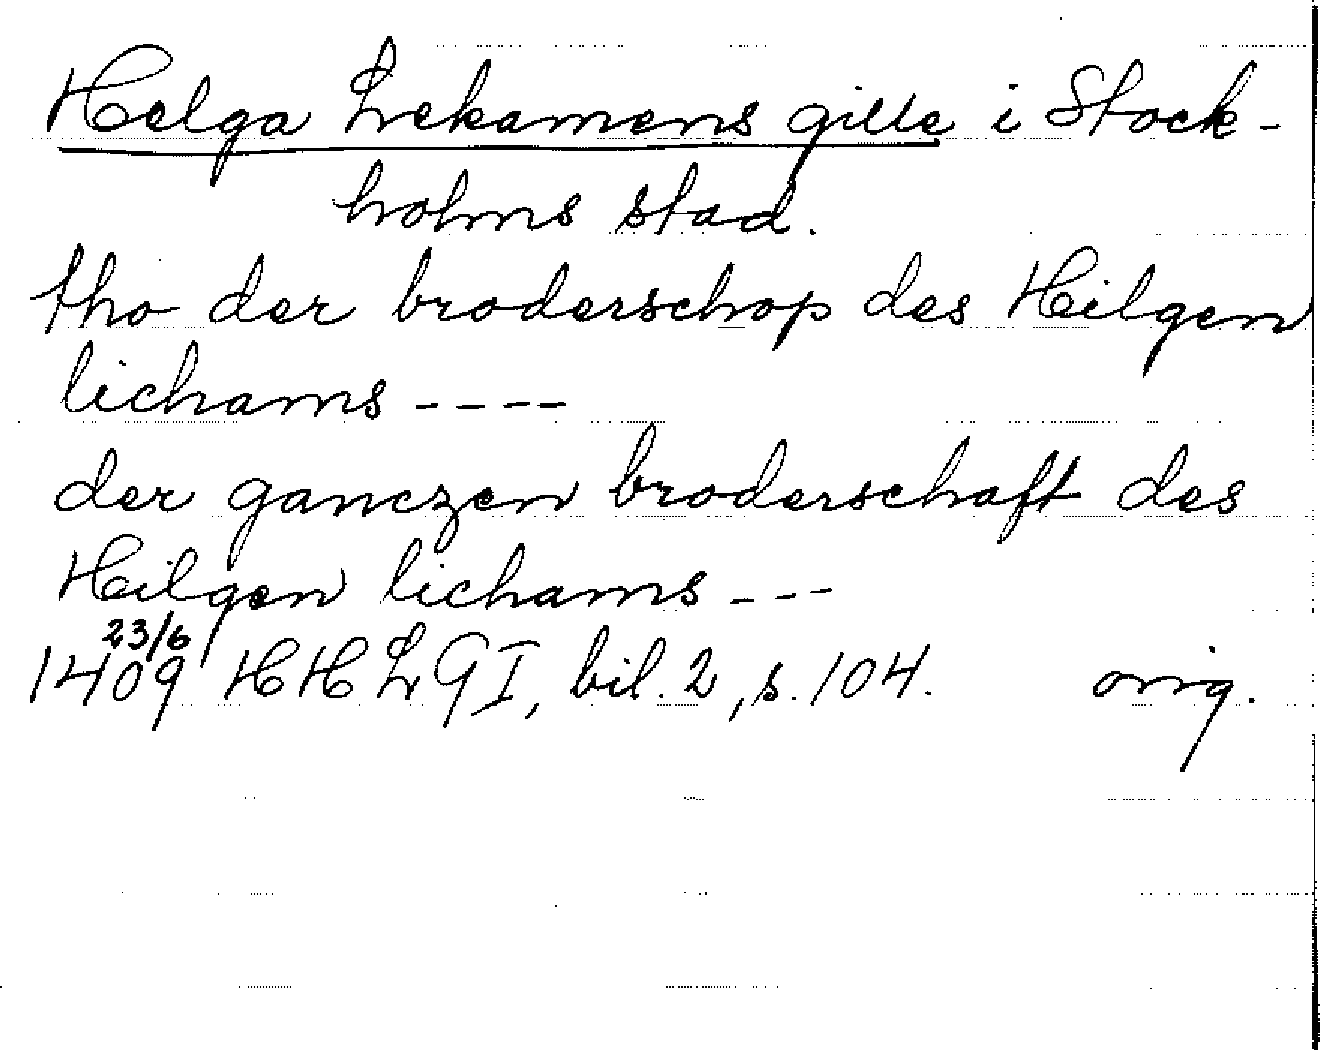 Helga Lekamens gille i Stock-
holms stad.
tho der broderschop des Hilgen
lichams ----
der ganczen broderschaft des
Hilgen lichams ---
23/6
1409 HHLGI, bil. 2, s. 104. orig.